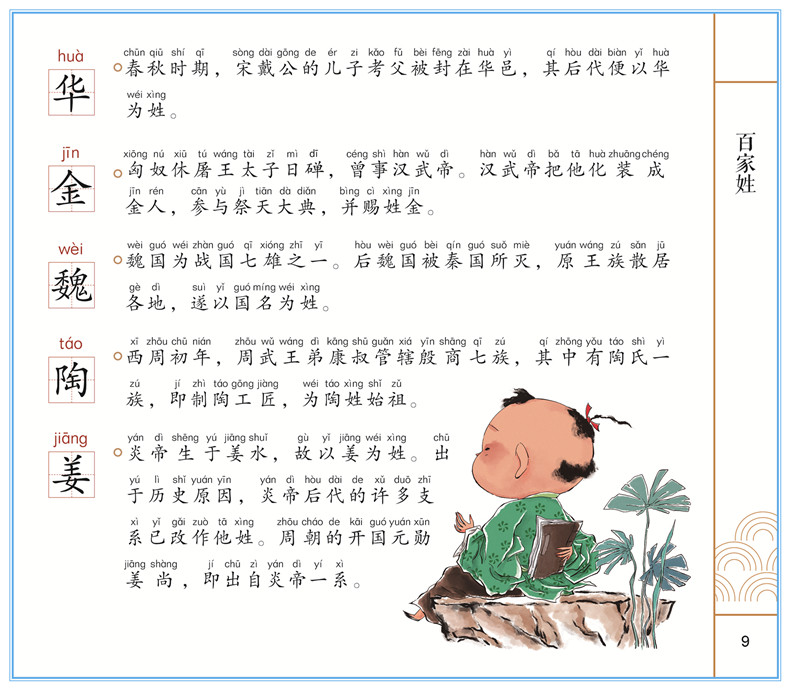 huà
华
chūn qiū shí qī sòng dài gōng de ér zi kǎo fǔ bèi fēng zài huà yì qí hòu dài biàn yǐ huà
春秋时期，宋戴公的儿子考父被封在华邑，其后代便以华
wéi xìng
为姓。
jīn
金
xiōng nú xiū tú wáng tài zǐ mì dī céng shì hàn wǔ dì hàn wǔ dì bǎ tā huà zhuāng chéng
匈奴休屠王太子日䃅，曾事汉武帝。汉武帝把他化装成
jīn rén cān yù jì tiān dà diǎn bìng cì xìng jīn
金人，参与祭天大典，并赐姓金。
wèi
魏
wèi guó wéi zhàn guó qī xióng zhī yī hòu wèi guó bèi qín guó suǒ miè yuán wáng zú sǎn jū
魏国为战国七雄之一。后魏国被秦国所灭，原王族散居
gè dì suì yǐ guó míng wéi xìng
各地，遂以国名为姓。
táo
陶
xī zhōu chū nián zhōu wǔ wáng dì kāng shū guǎn xiá yīn shāng qī zú qí zhōng yǒu táo shì yì
西周初年，周武王弟康叔管辖殷商七族，其中有陶氏一
zú jí zhì táo gōng jiàng wéi táo xìng shǐ zǔ
族，即制陶工匠，为陶姓始祖。
jiāng
姜
yán dì shēng yú jiāng shuǐ gù yǐ jiāng wéi xìng chū
炎帝生于姜水，故以姜为姓。出
yú lì shǐ yuán yīn yán dì hòu dài de xǔ duō zhī
于历史原因，炎帝后代的许多支
xì yǐ gǎi zuò tā xìng zhōu cháo de kāi guó yuán xūn
系已改作他姓。周朝的开国元勋
jiāng shàng jí chū zì yán dì yí xì
姜尚，即出自炎帝一系。
百家姓
9